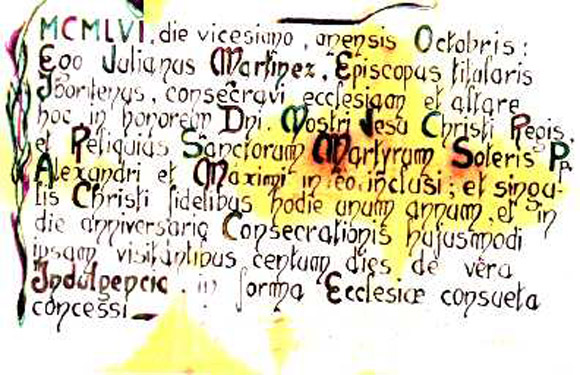 MCMLVI, die vicesiano, mensis Octobris:
Ego Julianus Martinez, Episcopus titularis
consecravi ecclesiam et altare
hoc, in honorem Dni. Nostri Jesu Christi Regis,
et Reliquias Sanctorum Martyrum Soteris Pp.
Alexandri et Maximi in eo inclusi; et singu-
lis Christi fidelibus hodie unum annum, et in
die anniversario Consecrationis hujusmodi
ipsam visitantibus centum dies de vera
Indulgencia, in forma Ecclesiæ consueta
concessi